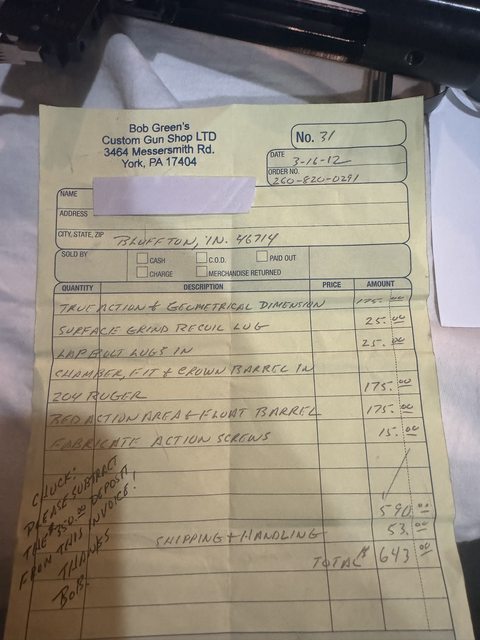 Bob Green's
Custom Gun Shop LTD
3464 Messersmith Rd.
York, PA 17404
No. 31
DATE 3-16-12
ORDER NO. 260-820-0291
NAME
ADDRESS
CITY, STATE, ZIP BLUFFTON, IN. 46714
SOLD BY CASH C.O.D. PAID OUT
CHARGE MERCHANDISE RETURNED
QUANTITY DESCRIPTION PRICE AMOUNT
TRUE ACTION & GEOMETRICAL DIMENSION 175.00
SURFACE GRIND RECOIL LUG 25.00
LAP BOLT LUGS IN 25.00
CHAMBER, FIT & CROWN BARREL IN
204 RUGER 175.00
BED ACTION AREA & FLOAT BARREL 175.00
FABRICATE ACTION SCREWS 15.00
590.00
SHIPPING & HANDLING 53.00
TOTAL $ 643.00
CHUCK:
PLEASE SUBTRACT
THE $350.00 DEPOSIT
FROM THIS INVOICE!
THANKS
BOB